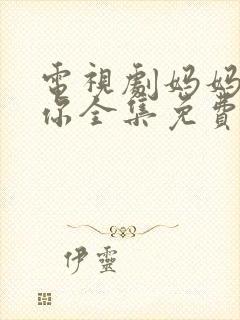 電視劇妈妈
你全集免費
伊靈